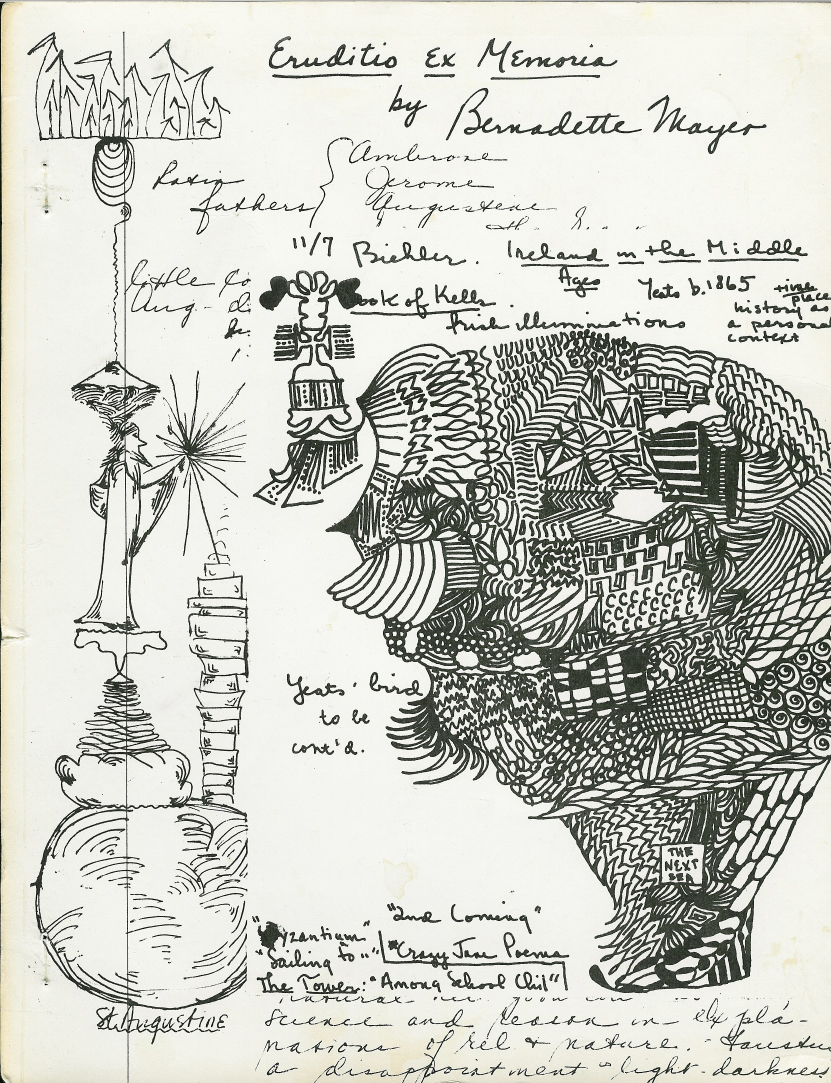 Eruditio Ex Memoria
by Bernadette Mayer
Latin fathers
Ambrose
Jerome
Augustine
11/7 Biehler. Ireland in the Middle Ages
Yeats b. 1865
time place history as a personal context
little
Aug -
Book of Kells.
Irish illuminations
Yeats' bird
to be
cont'd.
THE
NEXT
SEA
"2nd Coming"
"Byzantium"
"Sailing to" "
"Crazy Jane Poems
The Tower: "Among School Chil"
St. Augustine
science and reason in expla-
nations of rel + nature. Faustus
a disappointment light-darkness